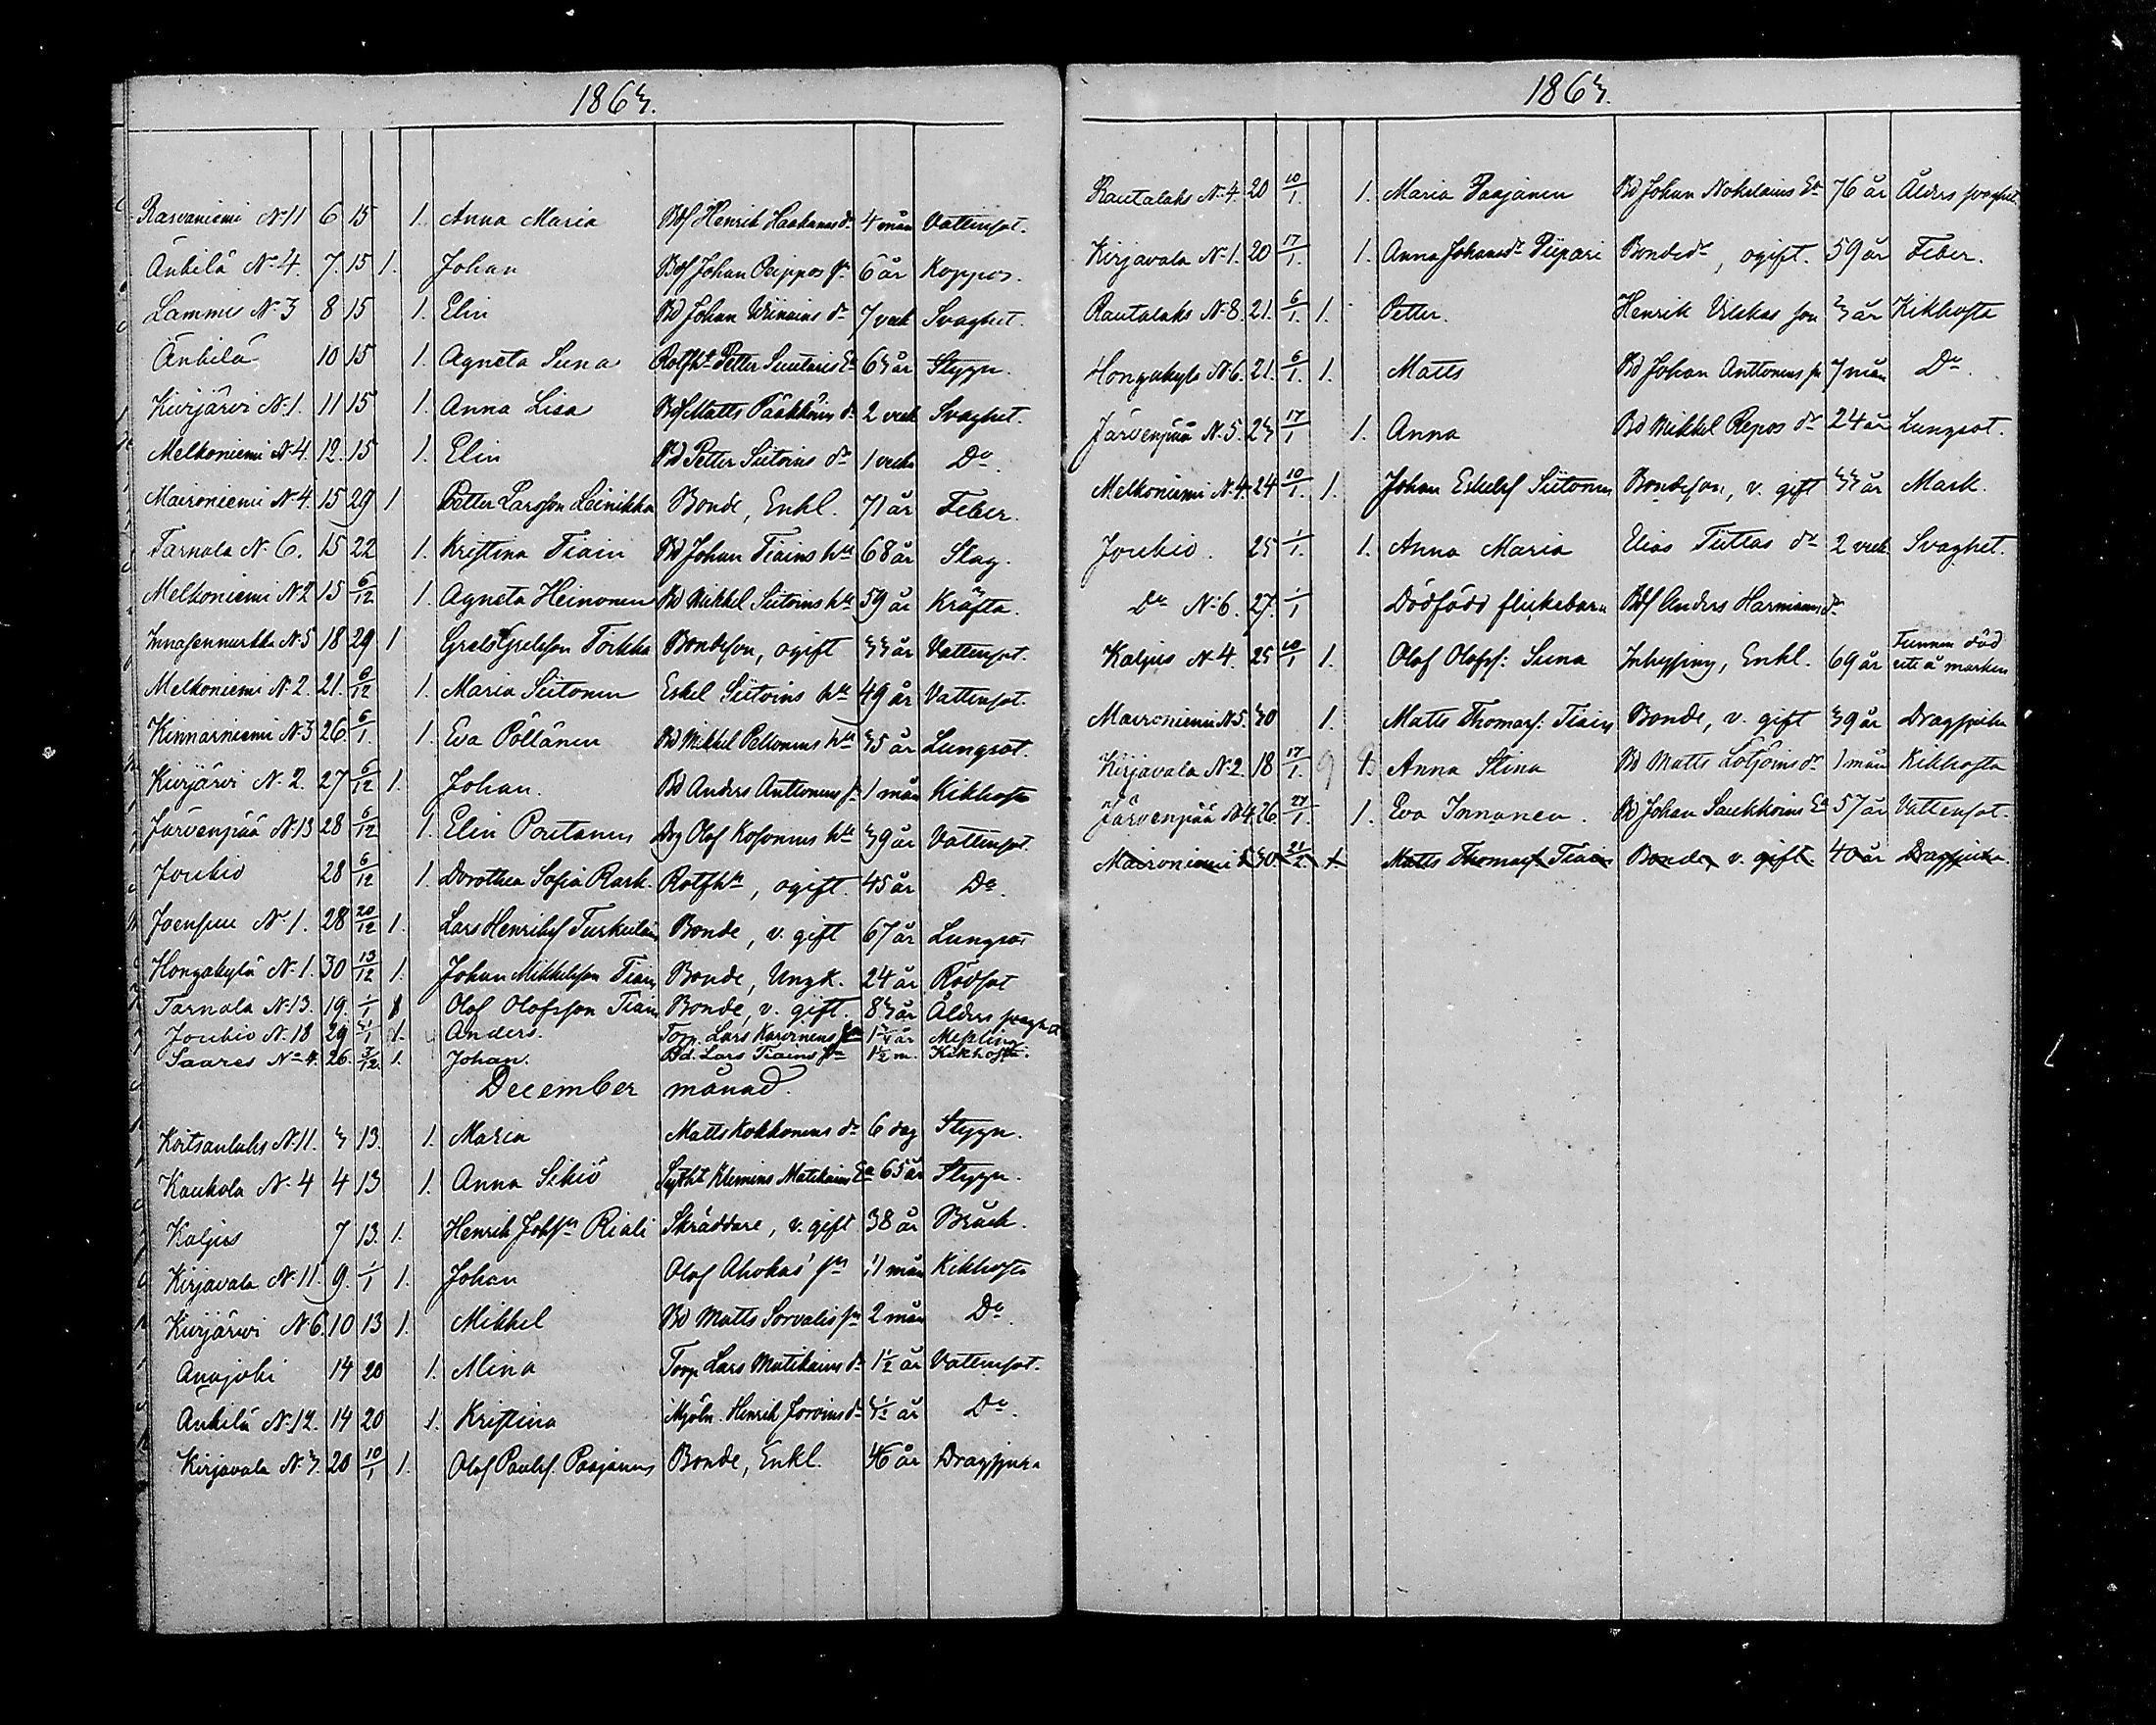 1863.
Rasvaniemi N:11 6 15 1. Anna Maria Bds Henrik Haakanas dr 4 mån Vattusot.
Änkilä N:4. 7. 15 1. Johan Bds Johan Peippos sn 6 år Koppor.
Lammis N:3 8 15 1. Elin Bd Johan dr 7 veck Svaghet.
Änkilä 10 15 1. Agneta Suna Rotfht Petter Suutaris Ea 63 år Stygn.
Kiurjärvi N:1. 11 15 1. Anna Lisa Bds Matts Pääkköins dr 2 veck Svaghet.
Melkoniemi N:4. 12. 15 1. Elin Bd Petter Siitoins dr 1 veck Do.
Maironiemi N:4. 15 29 1 Petter Larsson Leinikka Bonde, Enkl. 71 år Feber.
Tarnala N:6. 15 22 1. Kristina Tiain Bd Johan Tiains hu 68 år Slag.
Melkoniemi N:2 15 6/12 1. Agneta Heinonen Bd Mikkel Siitoins hu 59 år Kräfta.
Innasennurkka N:5 18 29 1 Grels Grelsson Torkka Bondeson, ogift 33 år Vattusot.
Melkoniemi N:2. 21. 6/12 1. Maria Siitonen Eskel Siitoins hu 49 år Vattusot.
Kinnarniemi N:3 26. 6/1. 1. Eva Pöllänen Bd Mikkel Peltonens hu 35 år Lungsot.
Kiurjärvi N:2. 27 6/12 1. Johan. Bd Anders Anttonens sn 1 mån Kikhosta
Järvenpää N:13 28 6/12 1. Elin Poutanen Drg Olof Kosonens hu 39 år Vattusot.
Joukio 28 6/12 1. Dorothea Sofia Rask. Rotfhn, ogift. 45 år Do.
Joensuu N:1. 28 20/12 1. Lars Henrikss Turkulain Bonde, v. gift 67 år Lungsot
Hongakylä N:1. 30 13/12 1. Johan Mikkelsson Tiain Bonde, Ungk. 24 år Rödsot
Tarnala N:13. 19. 1/1 1 Olof Olofsson Tiain Bonde, v. gift. 83 år Ålders svaghet
Joukio N:18 29 31/1 1. Anders. Torp. Lars Karvinens son 1 3/4 år Messling
Saares No 4. 26. 1. Johan. Bd. Lars Tiains sn 1 1/2 m. Kikhosta.
December månad.
Koitsanlaks N:11. 3 13. 1. Maria Matts Kokkonens dr 6 dag Stygn.
Kaukola N:4 4 13 1. Anna Sikiö Klemens Matikains Ea 65 år Stygn.
Kaljus 7 13. 1. Henrik Johsn Riali Skräddare, v. gift 38 år Bråck.
Kirjavala N:11. 9. 1/1 1. Johan Olof Ahokas' sn 11 mån Kikhosta
Kiurjärvi N:6. 10 13 1. Mikkel Bd Matts Sorvalis sn 2 mån Do.
Anajoki 14 20 1. Mina Torp Lars Matikains dr 1 1/2 år Vattusot.
Änkilä N:12. 14 20 1. Kristina Mjöln. Henrik dr 3 1/2 år Do.
Kirjavala N:3. 20 10/1 1. Olof Paulss. Paajanen Bonde, Enkl. 46 år Dragsjuka
1863.
Rautalaks N:4. 20 10/1. 1. Maria Paajanen Bd Johan Nokelains Ea 76 år Ålders svaghet.
Kirjavala N:1. 20 17/1. 1. Anna Johansdr Piipari Bondedr, ogift. 59 år Feber.
Rautalaks N:8. 21. 6/1. 1. Petter. Henrik Vilskas son 3 år Kikhosta
Hongakylä N:6. 21. 6/1. 1. Matts Bd Johan Anttonens sn 7 mån Do.
Järvenpää N:5. 23 17/1 1. Anna Bd Mikkel Repos dr 24 år Lungsot.
Melkoniemi N:4. 24 10/1. 1. Johan Eskelss Siitonen Bondeson, v. gift 33 år Mask.
Joukio. 25 1/1. 1. Anna Maria Elias Tuttas dr 2 veck Svaghet.
Do N:6. 27. 1/1 Dödfödd flickebarn Bds Anders Harmians dr
Kaljus N:4. 25 10/1 1. Olof Olofss: Suna Inhysing, Enkl. 69 år Funnen död ute å marken
Maironiemi N:5. 30 1. Matts Thomass: Tiain Bonde, v. gift 39 år Dragsjuka
Kirjavala N:2. 18 17/1. 9 1. Anna Stina Bd Matts Lötjöins dr 1 mån Kikhosta
Järvenpää N:4. 26. 24/1. 1. Eva Innanen. Bd Johan Saukkoins Ea 57 år Vattusot.
Maironiemi 5 30. 21/2 1. Matts Thomass Tiain Bonde, v. gift 40 år Dragsjuka.